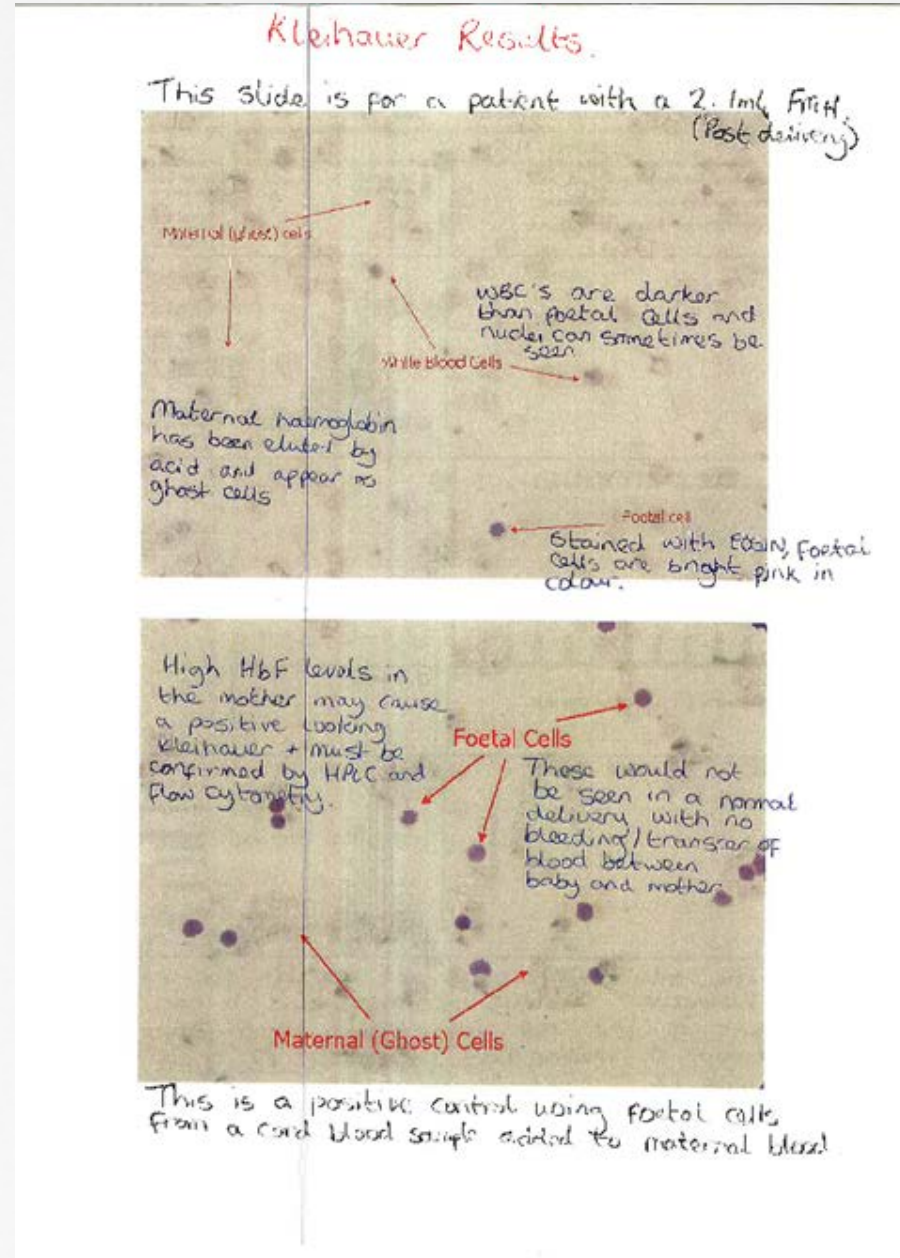 Kleihauer Results.
This slide is for a patient with a 2.1mL FMH.
(Post delivery)
Maternal (ghost) cells
WBC's are darker
than foetal cells and
nuclei can sometimes be
seen
White Blood Cells
Maternal haemoglobin
has been eluted by
acid and appear as
ghost cells
Foetal cell
Stained with EOSIN, foetal
cells are bright pink in
colour.
High HbF levels in
the mother may cause
a positive looking
Kleihauer + must be
confirmed by HPLC and
flow cytometry.
Foetal Cells
These would not
be seen in a normal
delivery with no
bleeding/transfer of
blood between
baby and mother
Maternal (Ghost) Cells
This is a positive control using foetal cells
from a cord blood sample added to maternal blood